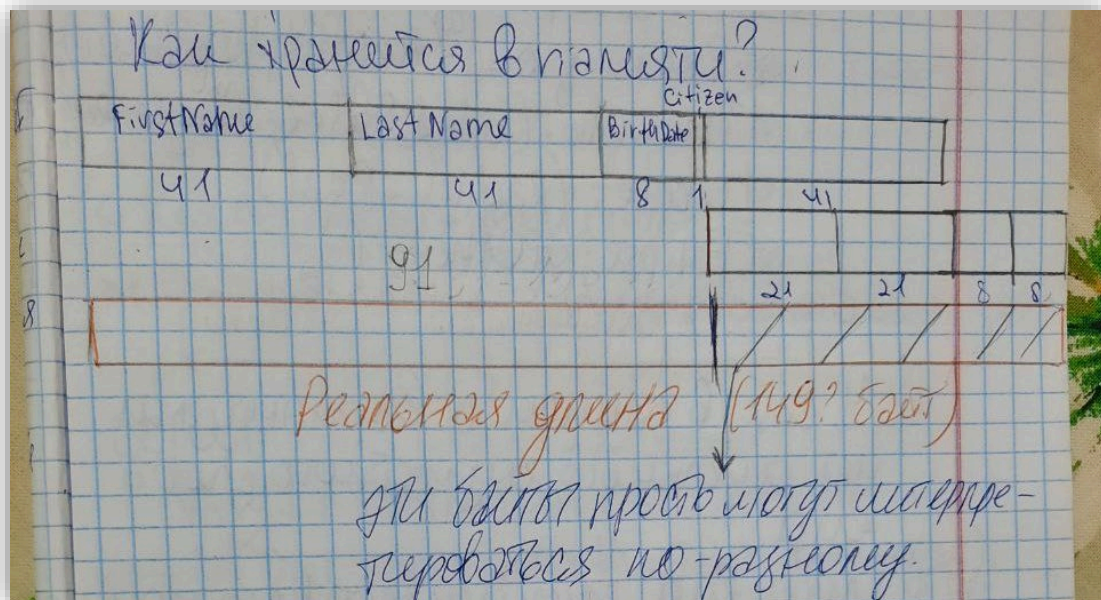 Как хранится в памяти?
Citizen
FirstName LastName BirthDate
41 41 8 1 41
91
21 21 8 8
Реальная длина (149? байт)
Эти байты просто могут интерпре-
тироваться по-разному.